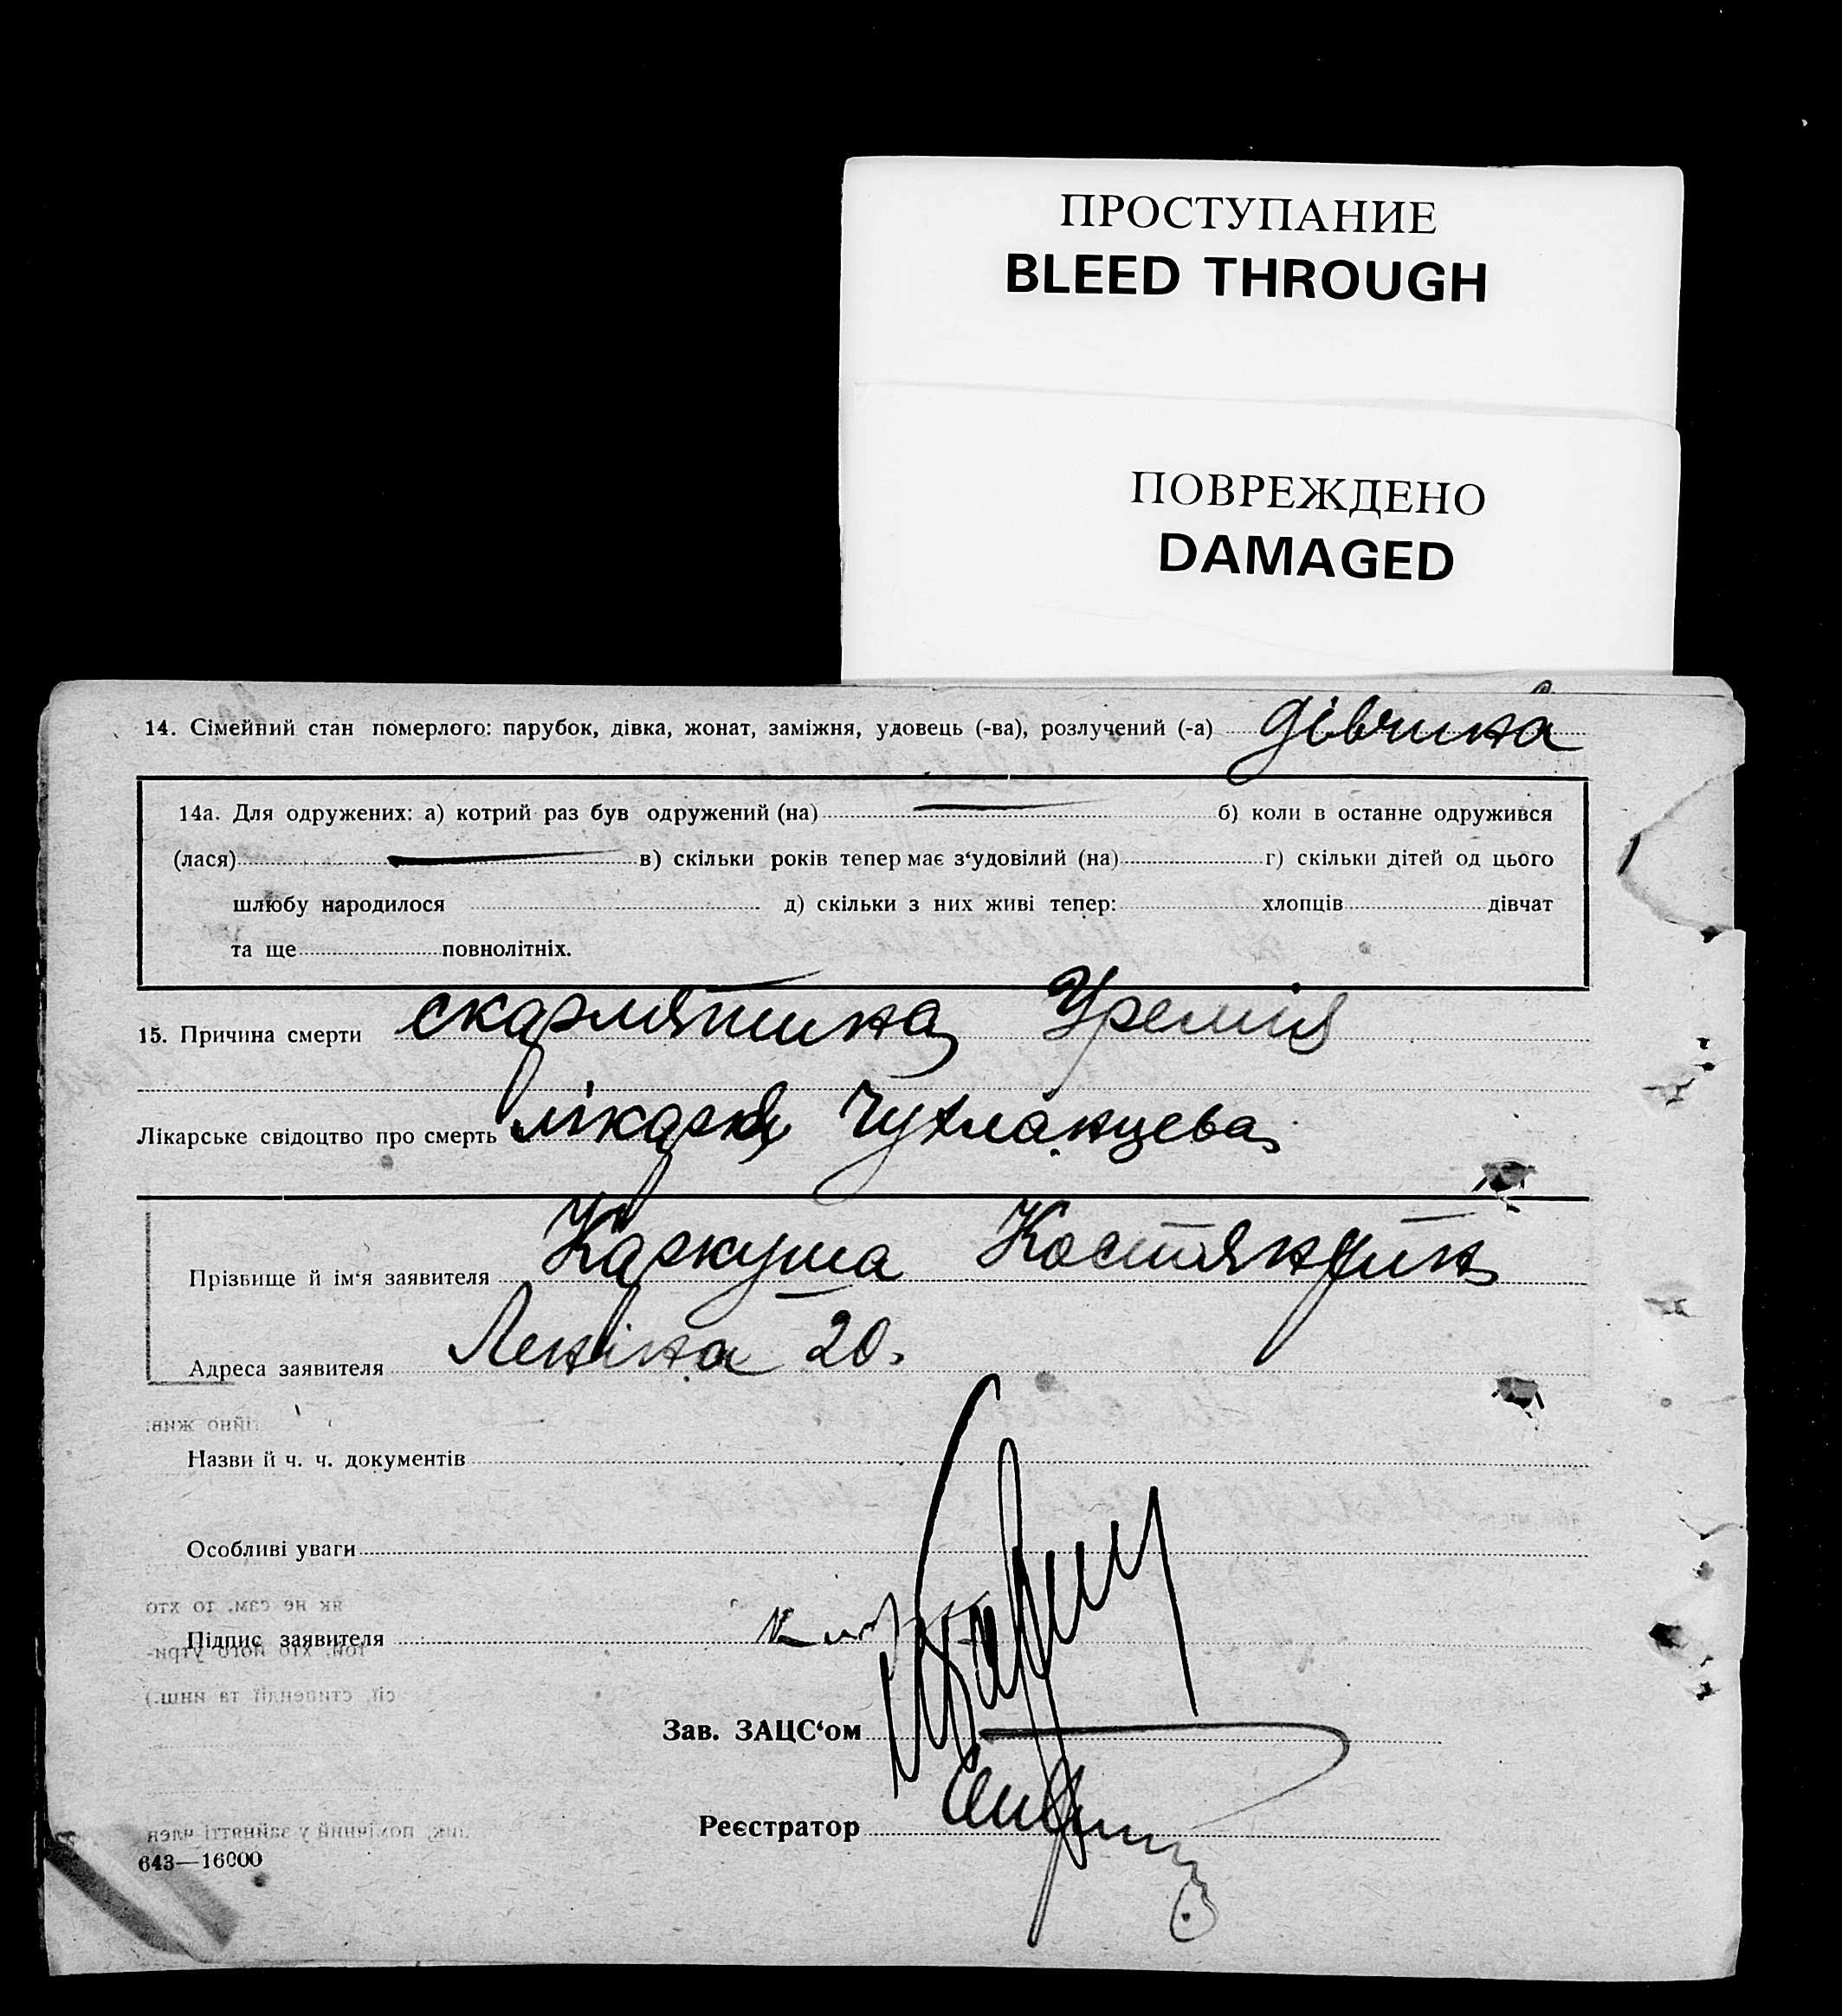 ПРОСТУПАНИЕ
BLEED THROUGH
ПОВРЕЖДЕНО
DAMAGED
14. Сімейний стан померлого: парубок, дівка, жонат, заміжня, удовець (-ва), розлучений (-а) дівчина
14а. Для одружених: а) котрий раз був одружений (на) — б) коли в останне одружився
(лася) — в) скільки років тепер має з‘удовілий (на) г) скільки дітей од цього
шлюбу народилося д) скільки з них живі тепер: хлопців дівчат
та ще повнолітніх.
15. Причина смерти скарлятина Уремія
Лікарське свідоцтво про смерть лікарка Чухланцева
Прізвище й ім‘я заявителя Каркуша Костянтин
Адреса заявителя Леніна 20.
Назви й ч. ч. документів
Особливі уваги
Підпис заявителя
Зав. ЗАЦС‘ом
Реєстратор
643—16000